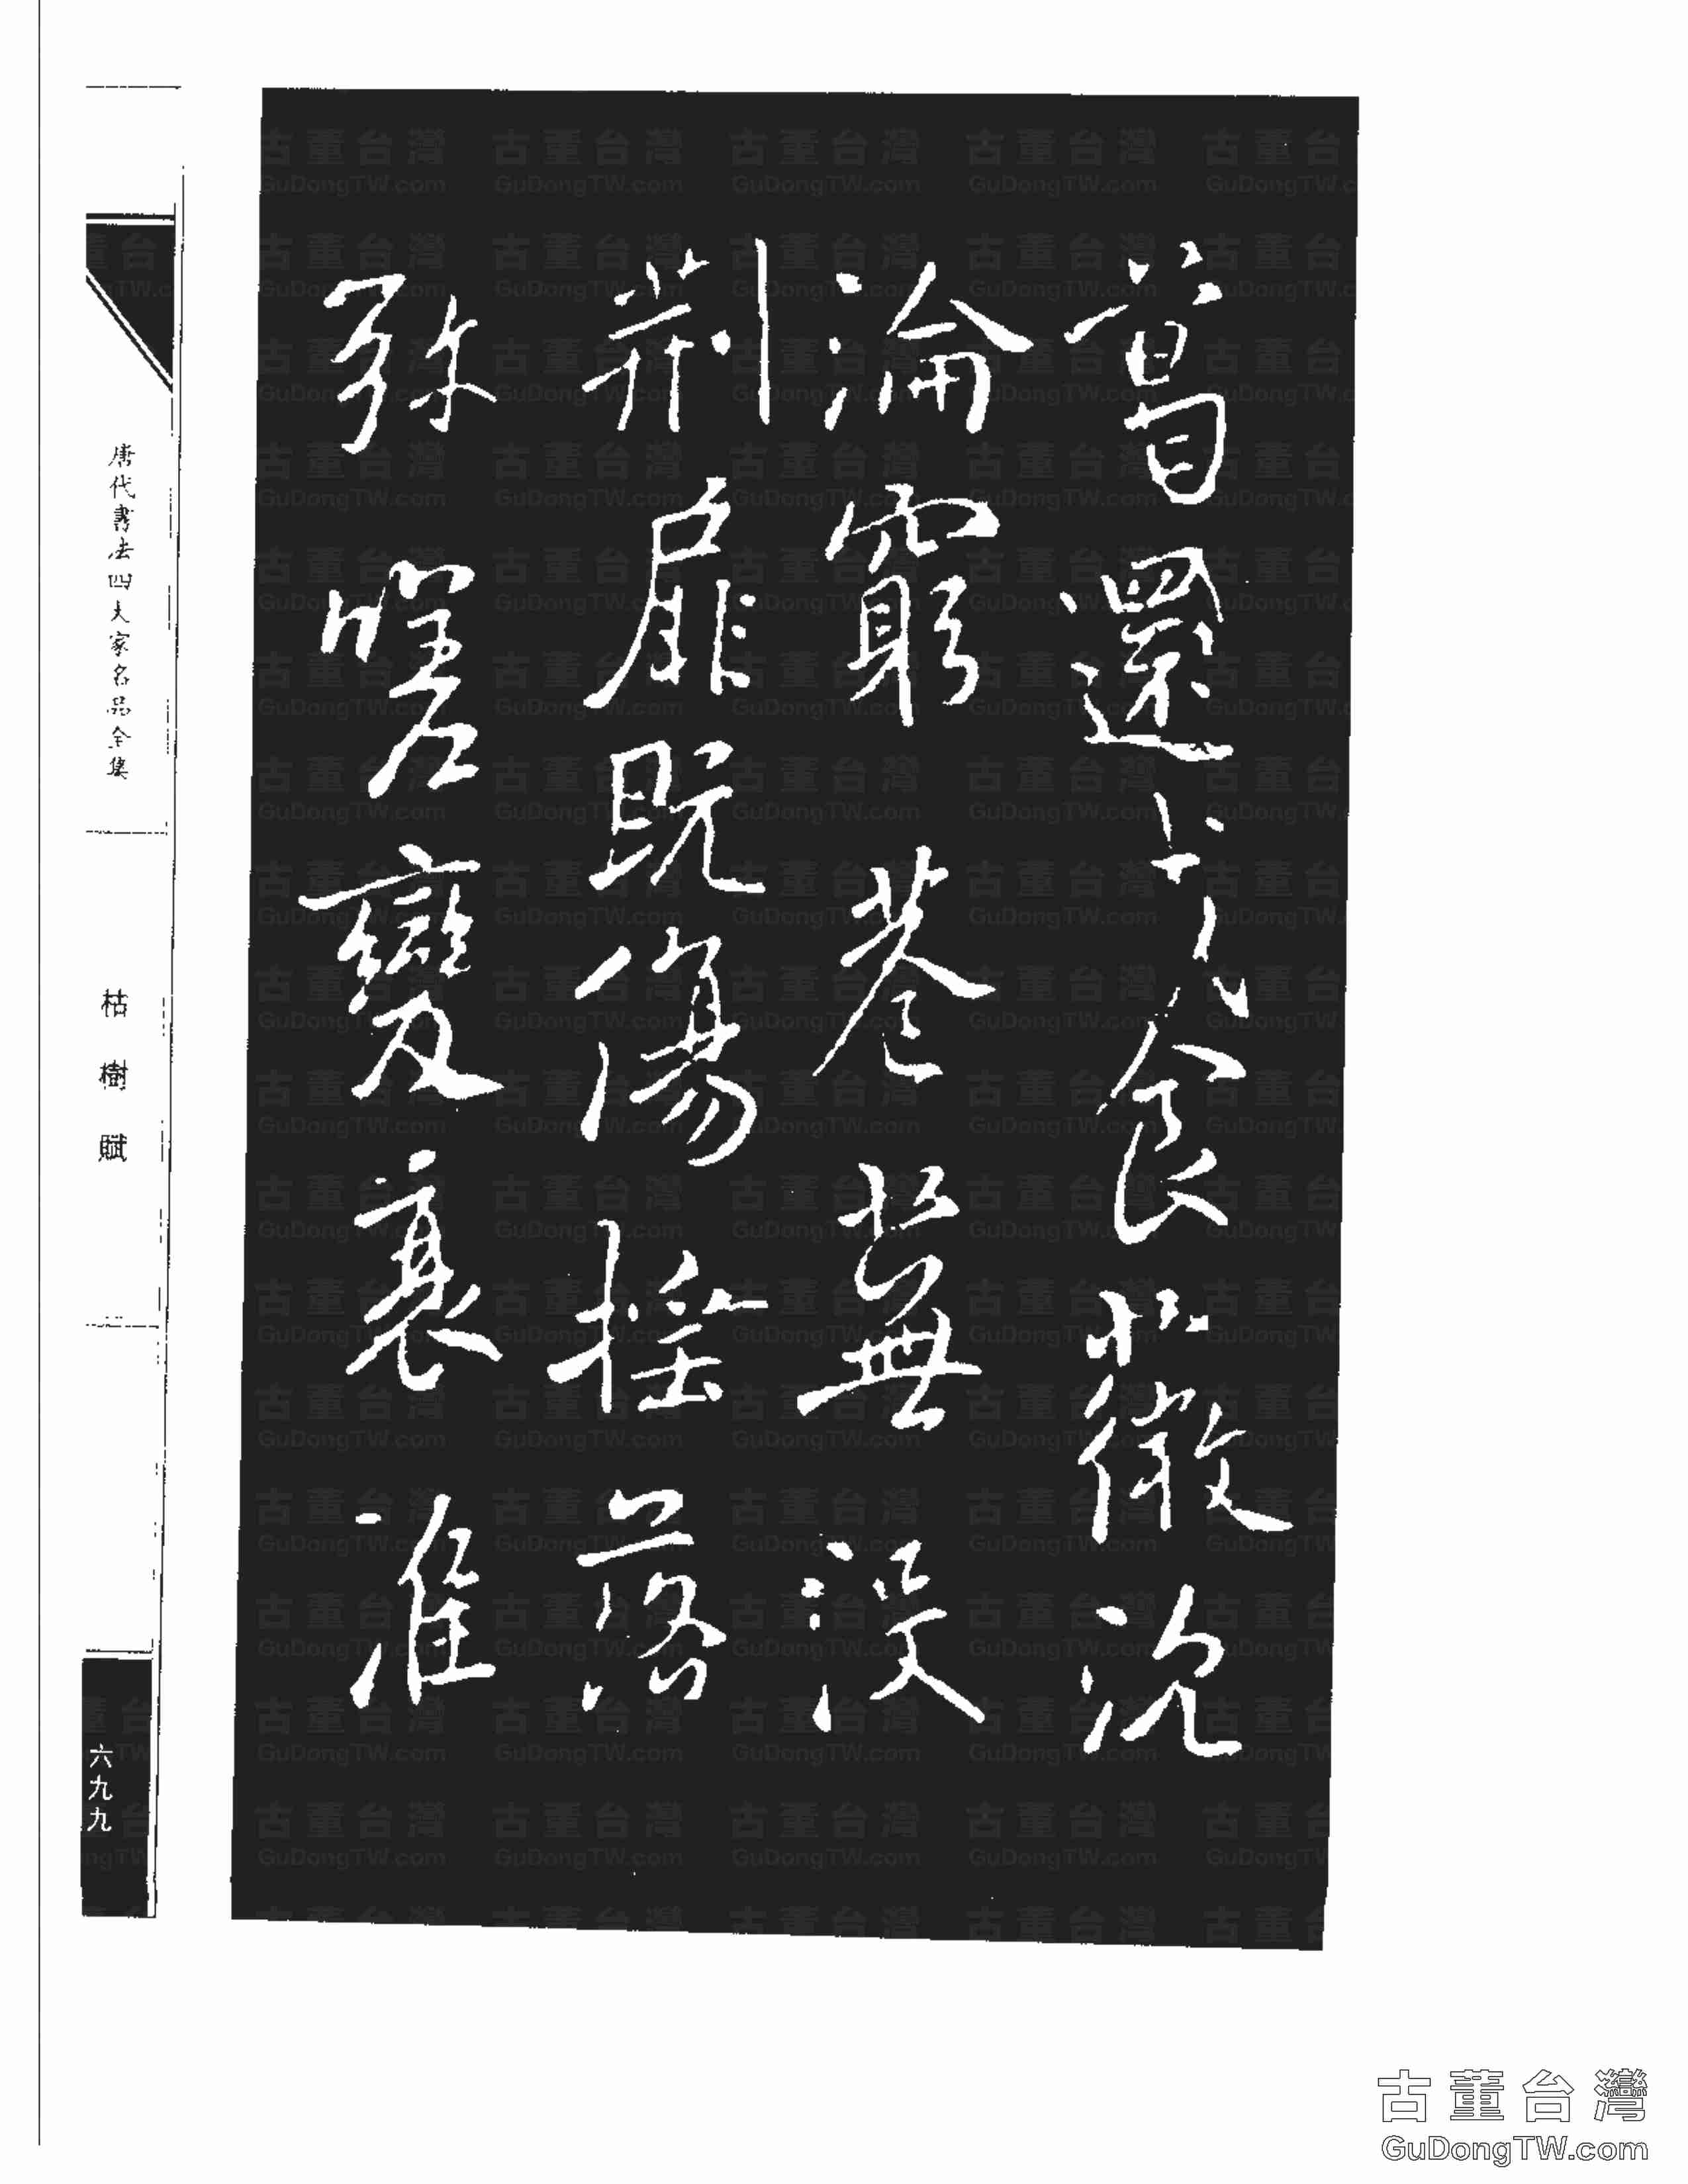 葛還成食薇沉
淪窮巷蕪沒
荊扉既傷搖落
弥嗟變衰淮
唐代書法四大家名品全集
枯樹賦
六九九
古董台灣
GuDongTW.com